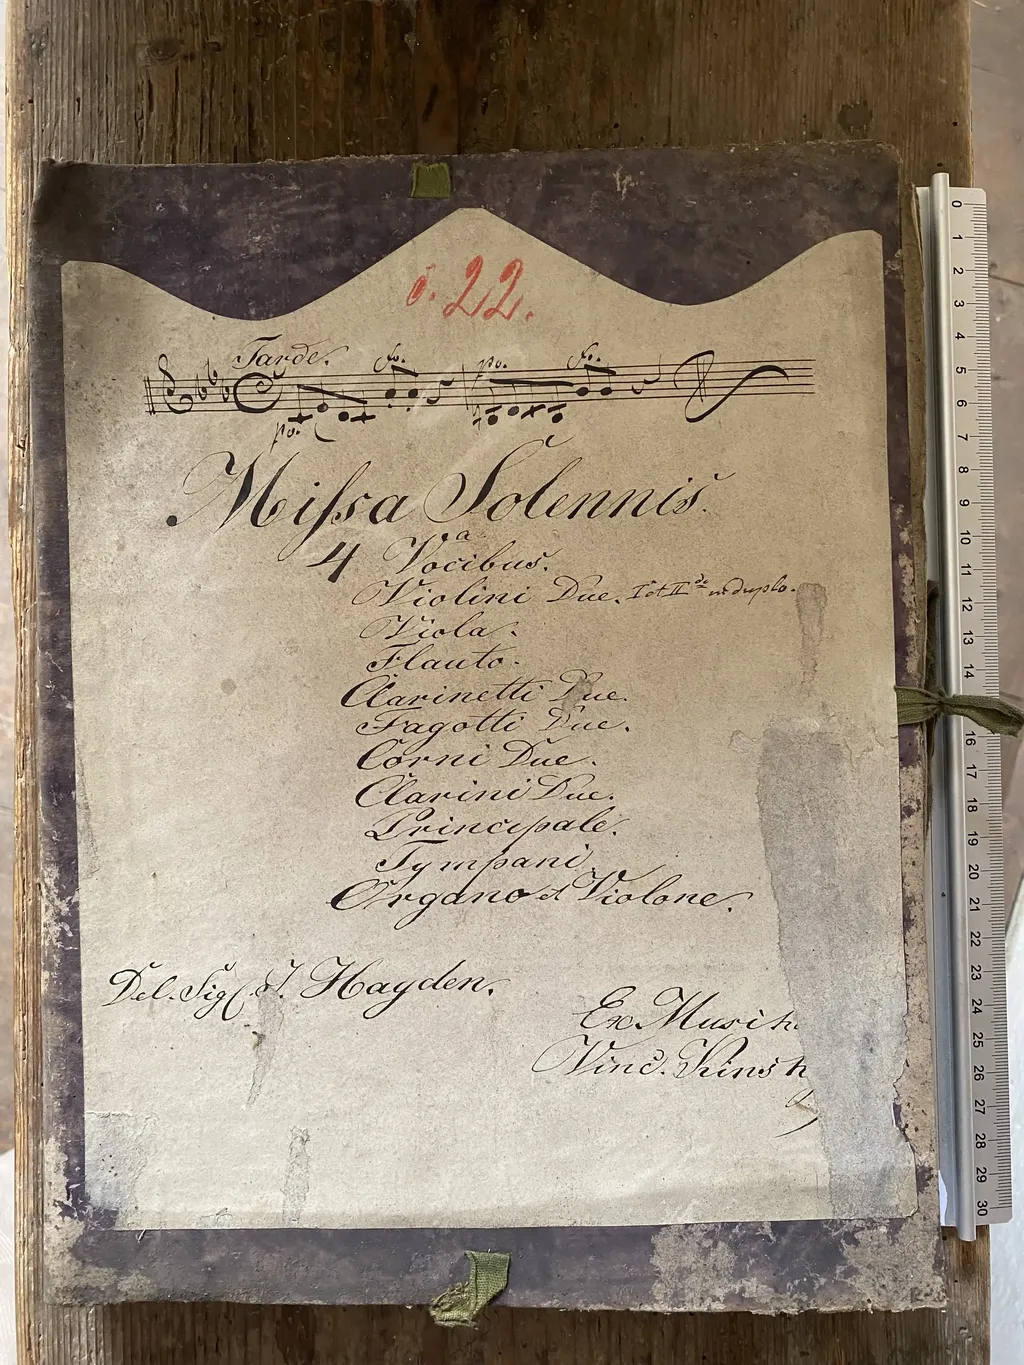 č. 22.
Tarde. fo. po. fo.
po.
Missa Solennis.
a
4 Vocibus.
Violini Due. I et II de in duplo.
Viola.
Flauto.
Clarinetti Due.
Fagotti Due.
Corni Due.
Clarini Due.
Principale.
Tympani.
Organo et Violone.
Del. Sig. J. Hayden.
Ex. Musik
Vinc.
0
1
2
3
4
5
6
7
8
9
10
11
12
13
14
16
17
18
19
20
21
22
23
24
25
26
27
28
29
30